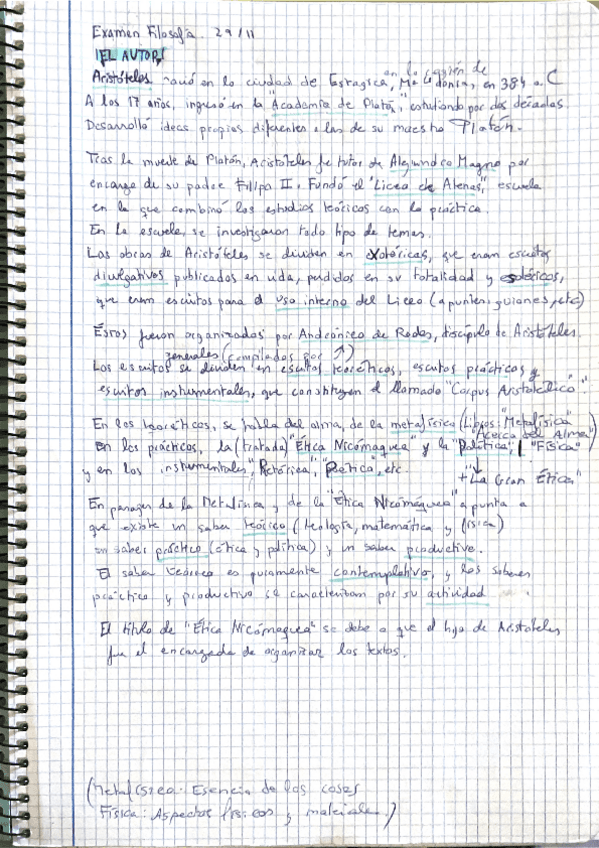 Examen Filosofía. 29/11
¡EL AUTOR!
Aristóteles nació en la ciudad de Estragira, en la región de Macedonia, en 384 a.C
A los 17 años, ingresó en la "Academia de Platón", estudiando por dos décadas.
Desarrolló ideas propias diferentes a las de su maestro Platón.
Tras la muerte de Platón, Aristóteles fue tutor de Alejandro Magno por
encargo de su padre Filipo II. Fundó el "Liceo de Atenas", escuela
en la que combinó los estudios teóricos con la práctica.
En la escuela, se investigaron todo tipo de temas.
Las obras de Aristóteles se dividen en exotéricas, que eran escritos
divulgativos publicados en vida, perdidos en su totalidad y esotéricos,
que eran escritos para el uso interno del Liceo (apuntes, guiones, etc)
Estos fueron organizados por Andrónico de Rodas, discípulo de Aristóteles.
generales (compilados por ↗)
Los escritos se dividen en escritos teoréticos, escritos prácticos y
escritos instrumentales, que constituyen el llamado "Corpus Aristotélico".
En los teoréticos, se habla del alma, de la metafísica (Libros: "Metafísica"
"Acerca del Alma")
En los prácticos, la (tratada) "Ética Nicómaquea" y la "Política", "Física"
y en los instrumentales, "Retórica", "Poética", etc. + "La Gran Ética"
En pasajes de la Metafísica y de la "Ética Nicómaquea" apunta a
que existe un saber teórico (teología, matemática y física)
un saber práctico (ética y política) y un saber productivo.
El saber teórico es puramente contemplativo, y los saberes
práctico y productivo se caracterizan por su actividad
El título de "Ética Nicómaquea" se debe a que el hijo de Aristóteles
fue el encargado de organizar los textos.
(Metafísica: Esencia de las cosas
Física: Aspectos físicos y materiales.)